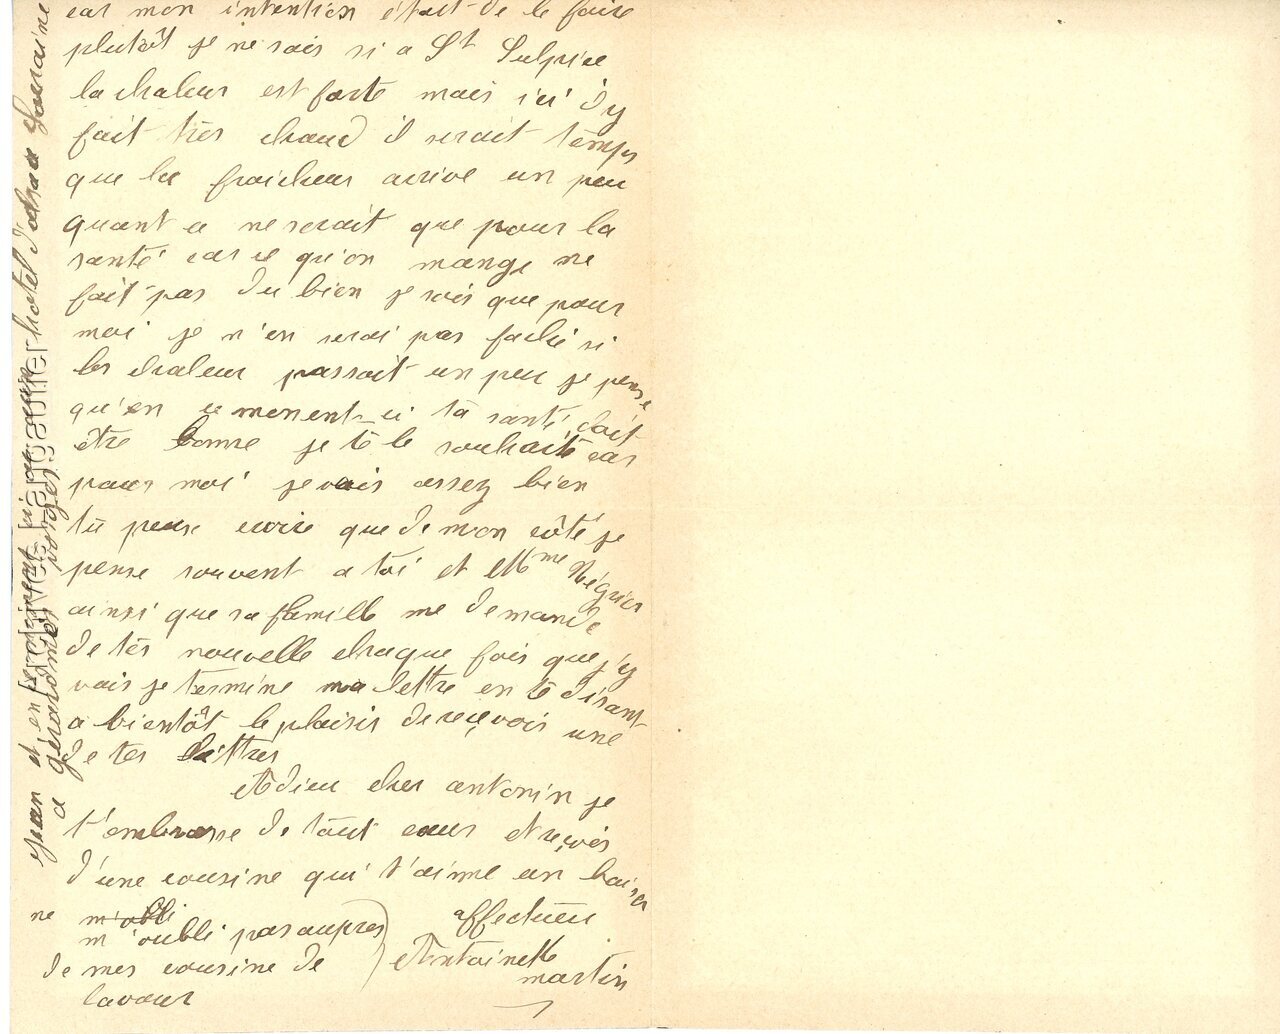 car mon intention était de le faire
plutôt je ne sais si a St Sulpice
la chaleur est forte mais ici d'y
fait tres chaud il serait temps
que la fraicheur arrive un peu
quant a ne serait que pour la
santé car ce qu'on mange ne
fait pas du bien je sais que pour
moi je n'en serai pas faché si
les chaleur passait un peu je pense
qu'en ce moment ci ta santé doit
être bonne je te le souhaite car
pour moi je vais assez bien
tu peux croire que de mon côté je
pense souvent a toi et Mme Négrier
ainsi que sa famille me demande
de tes nouvelle chaque fois que j'y
vais je termine ma lettre en te disant
a bientôt le plaisir de reçevoir une
de tes lettres
Adieu cher antonin je
t'embrasse de tout cœur et reçois
d'une cousine qui t'aime un baiser
affectueu
ne m'obli
m'oubli pas aupres
de mes cousine de
lavaur
Antoinette
martin
Jean et
hotel
a gérardmer vosges